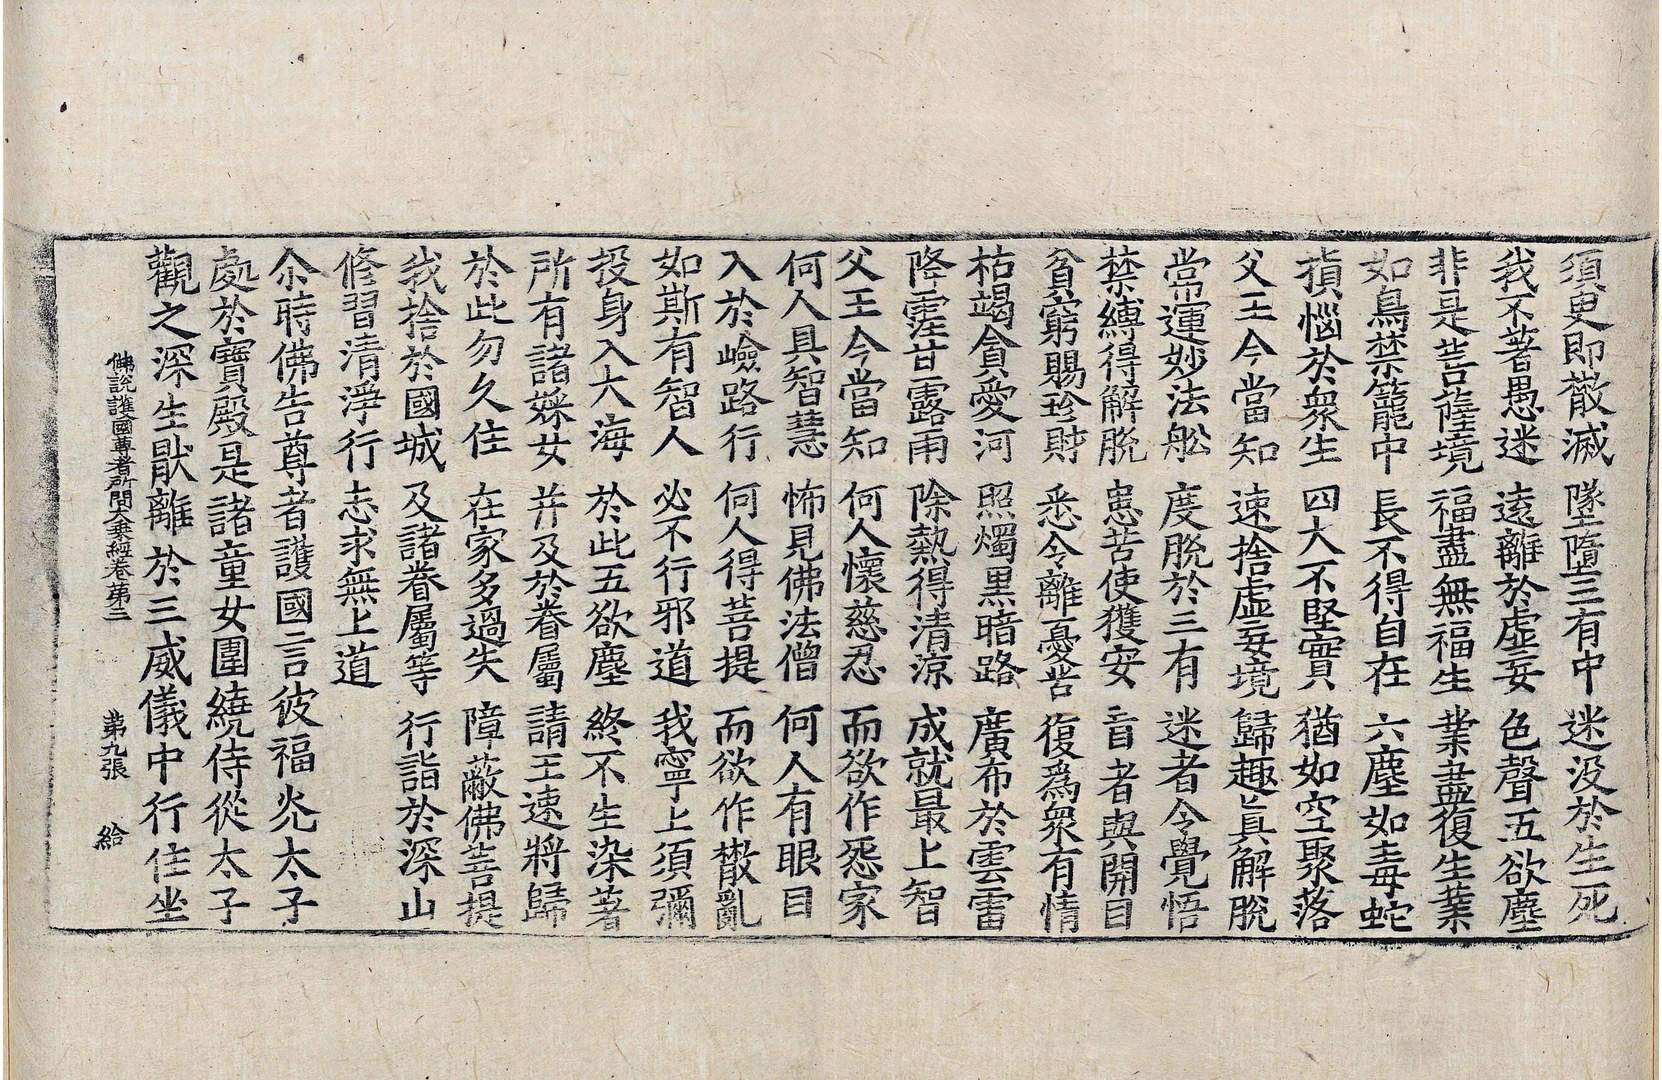 須臾即散滅 墜墮三有中 迷没於生死
我不著愚迷 遠離於虛妄 色聲五欲塵
非是菩薩境 福盡無福生 業盡復生業
如鳥禁籠中 長不得自在 六塵如毒蛇
損惱於衆生 四大不堅實 猶如空聚落
父王今當知 速捨虛妄境 歸趣眞解脫
常運妙法舩 度脫於三有 迷者令覺悟
禁縛得解脫 患苦使獲安 盲者與開目
貧窮賜珍財 悉令離憂苦 復爲衆有情
枯竭貪愛河 照燭黑暗路 廣布於雲雷
降霔甘露雨 除熱得清涼 成就最上智
父王今當知 何人懷慈忍 而欲作惡家
何人具智慧 怖見佛法僧 何人有眼目
入於嶮路行 何人得菩提 而欲作散亂
如斯有智人 必不行邪道 我寧上須彌
投身入大海 於此五欲塵 終不生染著
所有諸婇女 并及於眷屬 請王速將歸
於此勿久住 在家多過失 障蔽佛菩提
我捨於國城 及諸眷屬等 行詣於深山
修習清淨行 志求無上道
尒時佛告尊者護國言彼福光太子
處於寶殿是諸童女圍繞侍從太子
觀之深生猒離於三威儀中行住坐
佛說護國尊者所問大乗經卷苐三 苐九張 給